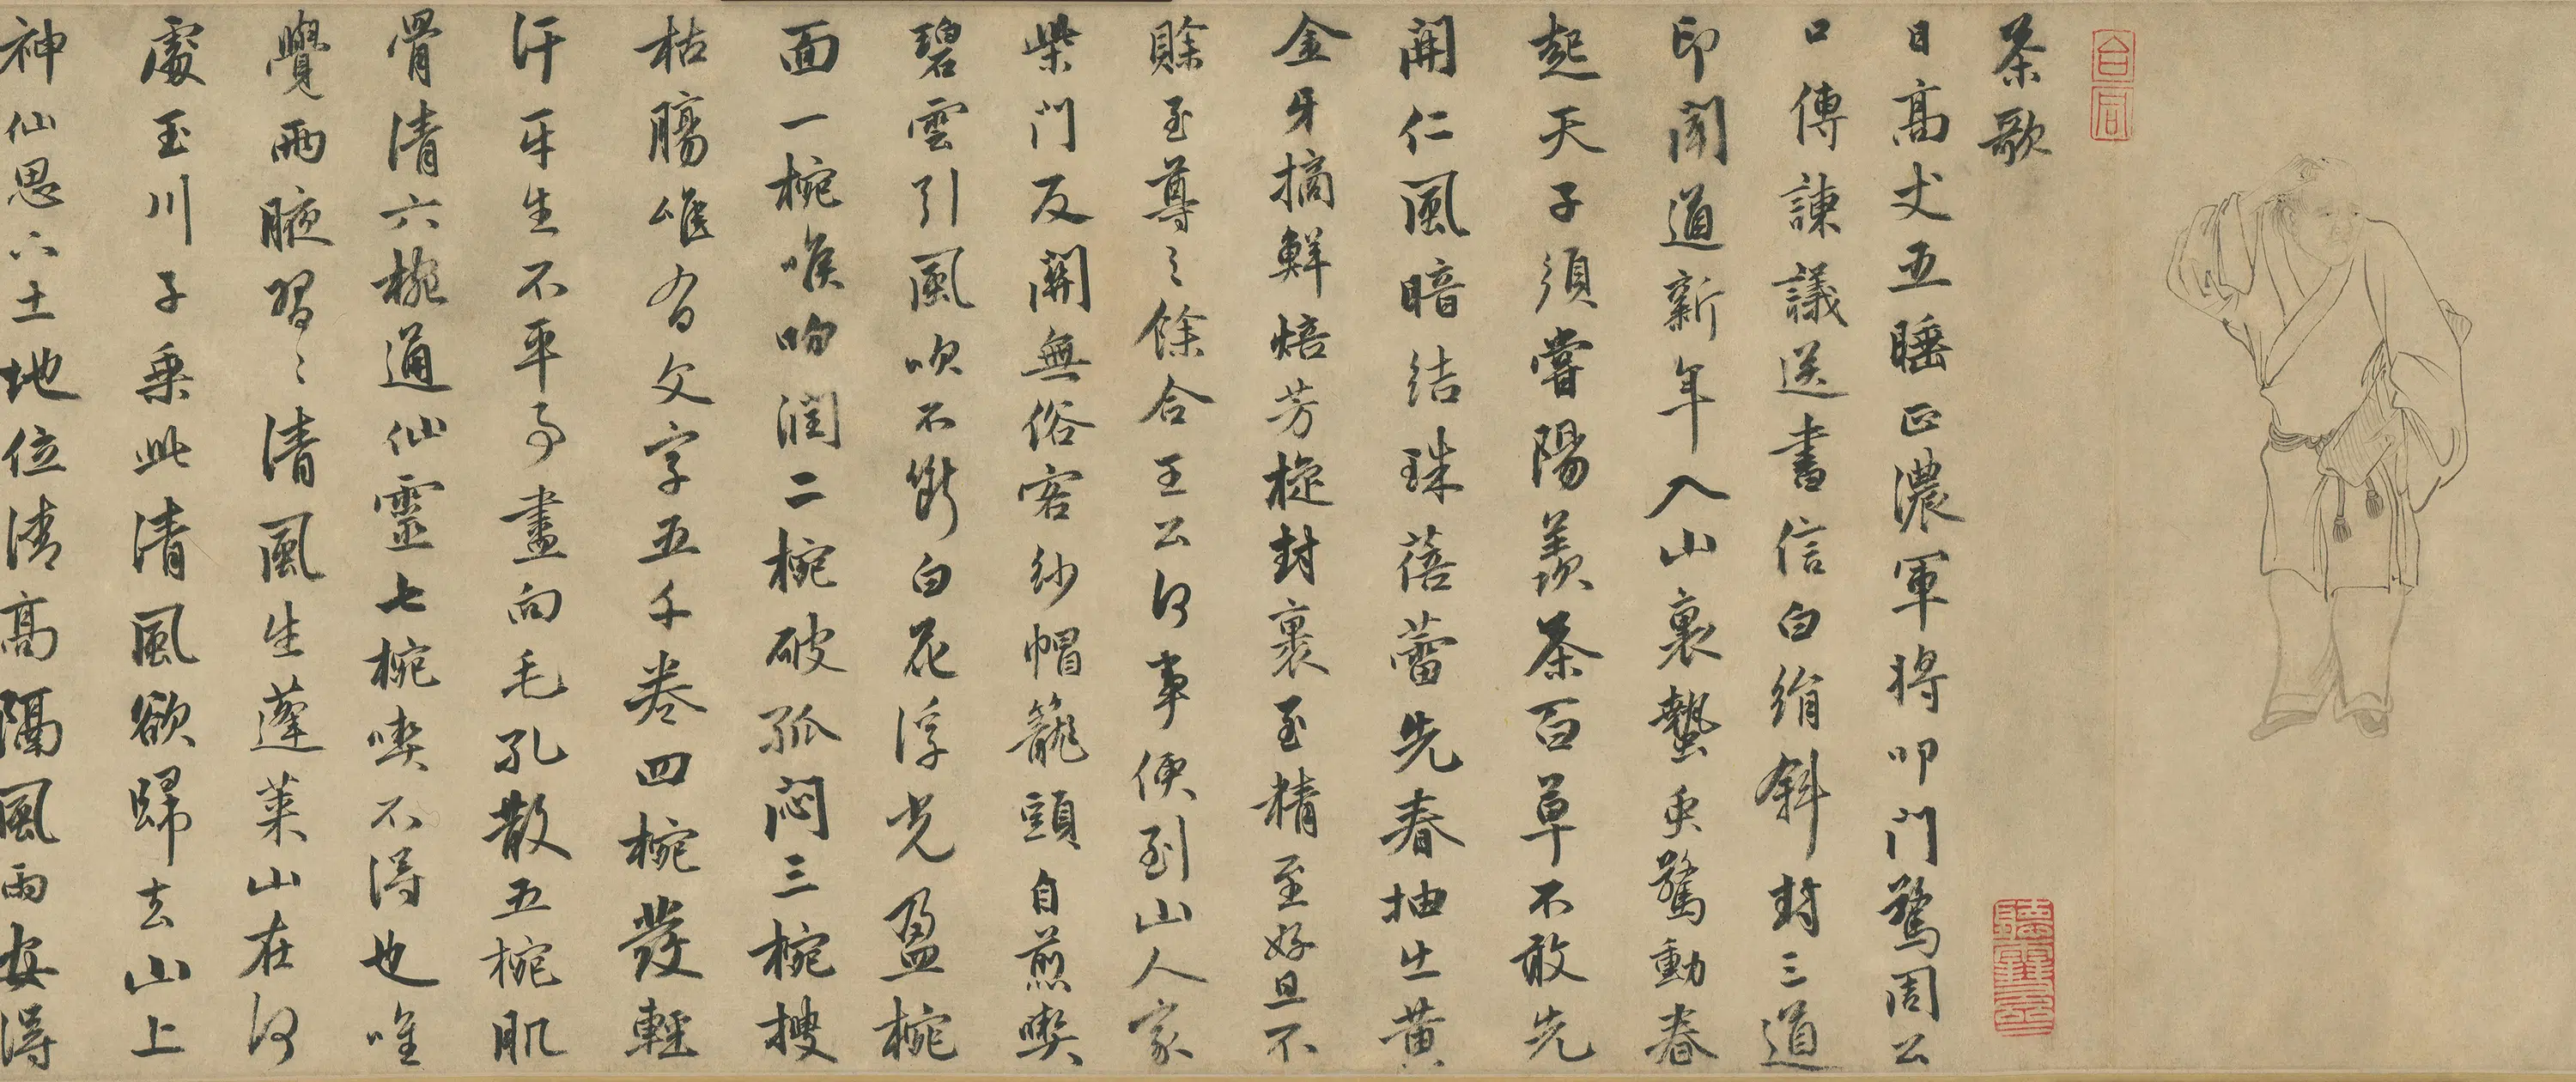 茶歌
日高丈五睡正濃軍將叩門驚周公
口傳諫議送書信白絹斜封三道
印聞道新年入山裏蟄虫驚動春
起天子須嘗陽羨茶百草不敢先
開仁風暗結珠蓓蕾先春抽出黃
金牙摘鮮焙芳旋封裹至精至好且不
賖至尊〻餘合王公何事便到山人家
柴門反關無俗客紗帽籠頭自煎喫
碧雲引風吹不斷白花浮光盈椀
面一椀喉吻潤二椀破孤悶三椀搜
枯腸唯有文字五千卷四椀發輕
汗平生不平事盡向毛孔散五椀肌
骨清六椀通仙靈七椀喫不得也唯
覺兩腋習〻清風生蓬萊山在何
處玉川子乘此清風欲歸去山上
神仙思下土地位清高隔風雨安得
合同
聽雨